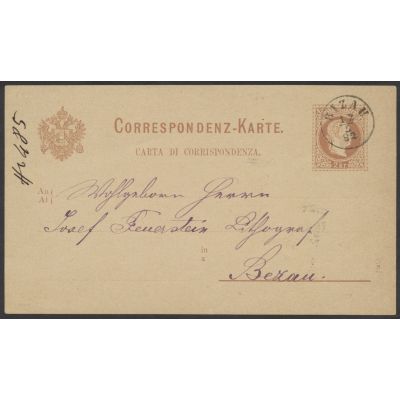 BIZAU
CORRESPONDENZ-KARTE.
CARTA DI CORRISPONDENZA.
2 kr.
An
A
Wohlgeborn Herrn
Josef Feuerstein Lithograf
in
a
Bezau.